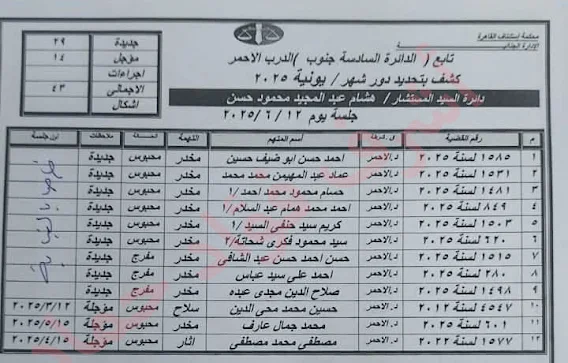 محكمة استئناف القاهرة
الإدارة الجنائية
تابع ( الدائرة السادسة جنوب ) الدرب الاحمر
كشف بتحديد دور شهر / يونية ٢٠٢٥
دائرة السيد المستشار / هشام عبد المجيد محمود حسن
جلسة يوم ١٢ / ٦ / ٢٠٢٥
جديدة ٢٩
مؤجل ١٤
اجراءات
الاجمالى ٤٣
اشكال
م رقم القضية اسم المتهم التهمة ملاحظات جلسة
١ ١٥٨٥ لسنة ٢٠٢٥ د.الاحمر احمد حسن ابو ضيف حسين مخدر محبوس جديدة
٢ ١٥٣١ لسنة ٢٠٢٥ د.الاحمر عماد عبد المهيمن محمد محمد مخدر محبوس جديدة
٣ ١٤٨١ لسنة ٢٠٢٥ د.الاحمر حسام محمود محمد احمد /١ مخدر محبوس جديدة
٤ ٨٤٩ لسنة ٢٠٢٥ د.الاحمر احمد محمد همام عبد السلام /١ مخدر محبوس جديدة
٥ ١٥٠٣ لسنة ٢٠٢٥ د.الاحمر كريم سيد حنفى السيد /١ مخدر محبوس جديدة
٦ ٦٢٠ لسنة ٢٠٢٥ د.الاحمر سيد محمود فكرى شحاتة/٢ مخدر محبوس جديدة
٧ ١٥١٥ لسنة ٢٠٢٥ د.الاحمر حسن احمد حسن عبد الشافى مخدر مفرج جديدة
٨ ٢٨٠ لسنة ٢٠٢٥ د.الاحمر احمد على سيد عباس مخدر محبوس جديدة
٩ ١٤٩٨ لسنة ٢٠٢٥ د.الاحمر صلاح الدين مجدى عبده مخدر مفرج جديدة
١٠ ٤٥٤٧ لسنة ٢٠١٢ د.الاحمر حسين محمد محي الدين سلاح محبوس مؤجلة ٢٠٢٥/٣/١٢
١١ ٦٠١ لسنة ٢٠٢٥ د.الاحمر محمد جمال عارف مخدر محبوس مؤجلة ٢٠٢٥/٥/١٥
١٢ ١٥٧٧ لسنة ٢٠٢٢ د.الاحمر مصطفى محمد مصطفى اثار مفرج مؤجلة ٢٠٢٥/٤/١٥